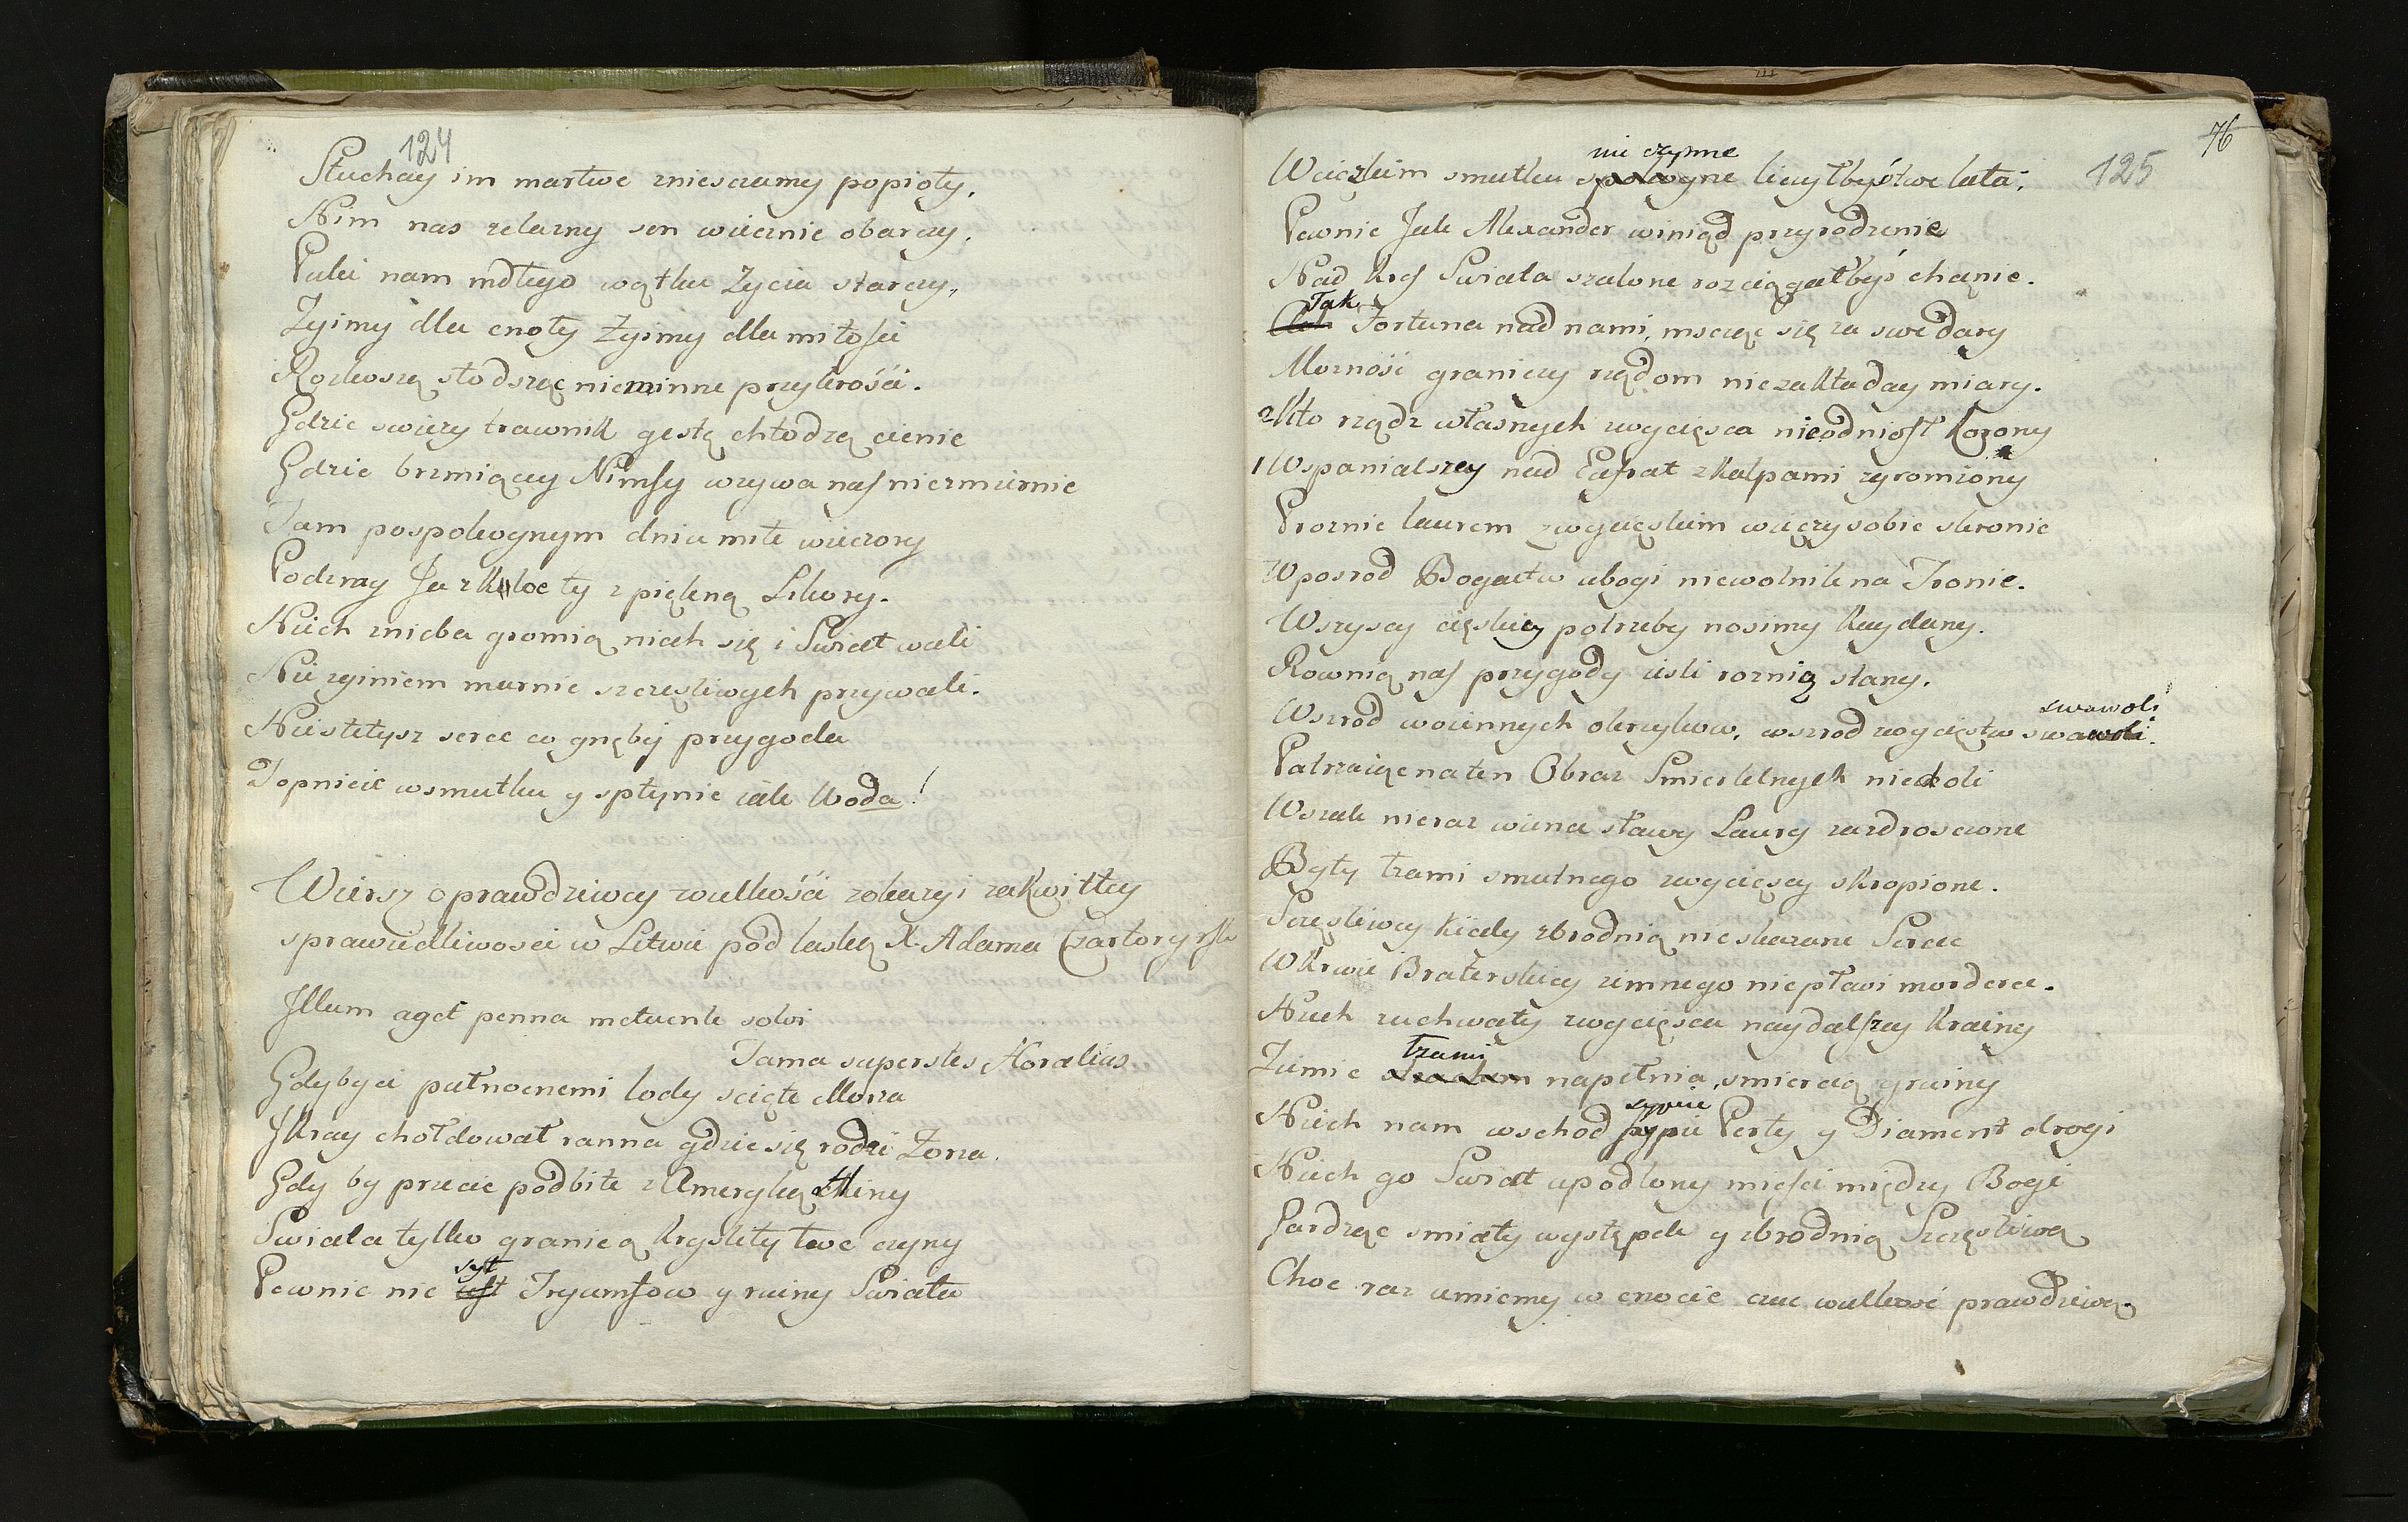 124
Słuchay im martwe zniesczemy popioły,
Nim nas zelazny sen wiecznie obarczy,
Puki nam mdłego wątku Zycia starczy,
Zyimy dla cnoty Zyimy dla miłosci
Rozkoszą słodsząc niewinne przykrośći.
Gdzie swiezy trawnik gęstę chłodzą cienie
Gdzie brzmiącey Nimfy wzywa nas niezmiernie
Tam pospokoynym dniu miłe wieczory
Podzmy Ja z ty z piękną Likory.
Niech znieba gromią niech się i Swiat wali
Nie zginiem marnie szczęsliwych przywali.
Niestetysz serce co gnębi przygoda
Topnieie wsmutku y spłynie iak Woda!
Wiersz o prawdziwey wielkośći zokazyi zakwitłey
sprawiedliwosci w Litwie pod laską X. Adama Czartoryysk
Illum aget penna metuente solvi
Fama superstes Horatius
Gdybyci pułnocnemi lody scięte Morza
I Kray chołdował ranna gdzie się rodzi Zorza.
Gdy by przecie podbite z Ameryką Chiny
Swiata tylko granicą kryslity twe czyny
syt
Pewnie nie iest Tryumfow y ruiny Swiata
76
125
nie czynne
Wcięzkim smutku spokoyne liczyłbyś twe lata,
Pewnie Jak Alexander winiąd przyrodzenie
Nad krąg Swiata szalone rozciągałbyś chęnie.
Tak
Fortuna nad nami, mscząc się za swe dary
Mozność graniczy rządom niezakładay miary.
2 Kto rządz własnych zwycięsca nieodniosł korony
1 Wspanialszey nad Eufrat zkalpami zgromiony
Proznie laurem zwycięskim wieczy sobie skronie
Wposrod Bogactw ubogi niewolnik na Tronie.
Wszyscy cięskiey potrzeby nosimy kaydany.
Rownią nas przygody iesli roznią stany.
swawoli
Wszrod woiennych okrzykow, wszrod zwycięstw swawoli.
Patrzaiąc na ten Obraz Smiertelnych niedoli
Wszak nieraz wiena sławy Laury zazdroscione
Były łzami smutnego zwycięscy skropione.
Sczęsliwey kiedy zbrodnią nieskazane Serce
W krwie Braterskiey zimnego niepławi morderce.
Niech zuchwały zwycięsca naydalszey krainy
łzami
Ziemie strachem napełnia, smiercią y ruiny
sypie
Niech nam wschod sypie Perły y Diament drogi
Niech go Swiat upodlony miesci między Bogi
Gardząc smiały występek y zbrodnią Szczęsliwą
Choc raz umiemy w cnocie czuc wielkosc prawdziwą.